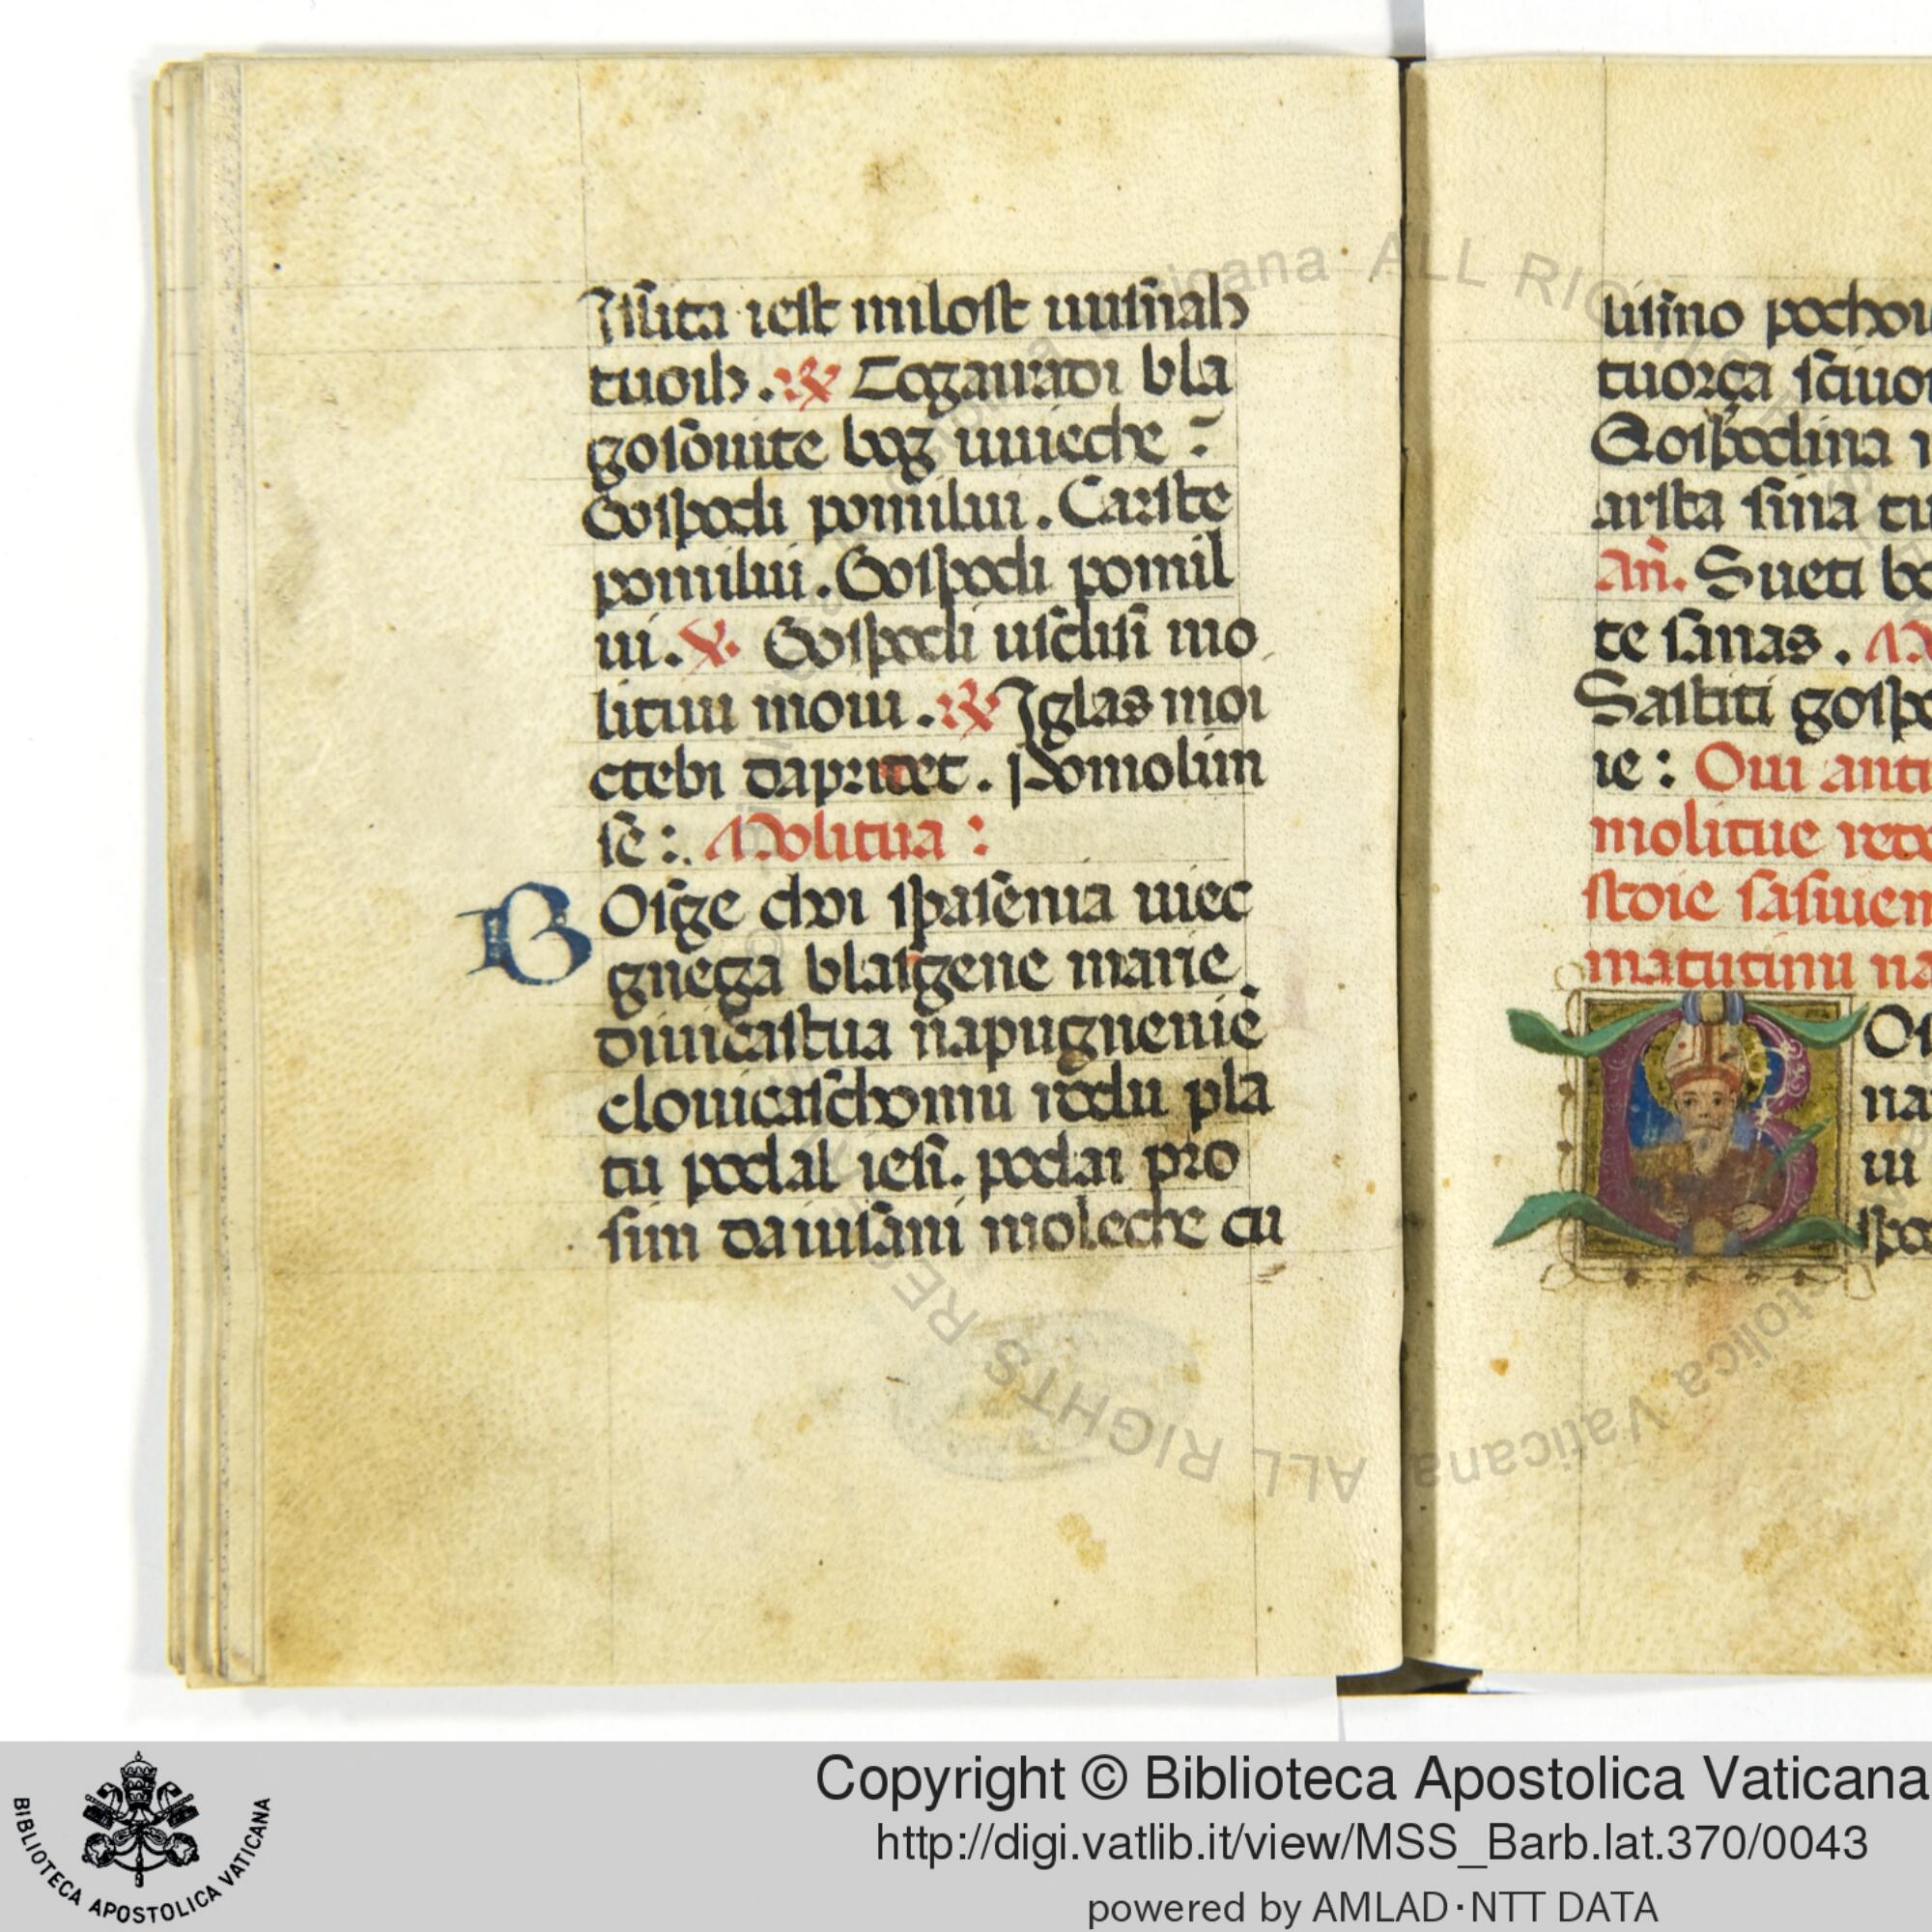 Isſlita ieſt miloſt uuſnah
tuoih. ℟ Togauradi bla
goſouite bog uuieche :
Goſpodi pomilui. Carſte
pomilui. Goſpodi pomil
ui. ℣. Goſpodi uſcliſi mo
lituu moiu. ℟ Iglas moi
ctebi dapridet. Pomolim
ſe :. Molitua :
Boſge choi ſpaſenia uiec
gnega blaſgene marie.
diuicaſtua napugnenie
clouicaſchomu rodu pla
tu podal ieſi. podai pro
ſim dauiſami moleche cu
liſino
tuorça
Goſpodina
ariſta ſina tu
Añ. Sueti
te ſ.nas.
Saſtiti
ie : Oui anti
molitue
ſtoie
matutinu na
na
ui
Biblioteca Apostolica Vaticana ALL RIGHTS RESERVED
BIBLIOTECA APOSTOLICA VATICANA
Copyright © Biblioteca Apostolica Vaticana
http://digi.vatlib.it/view/MSS_Barb.lat.370/0043
powered by AMLAD·NTT DATA